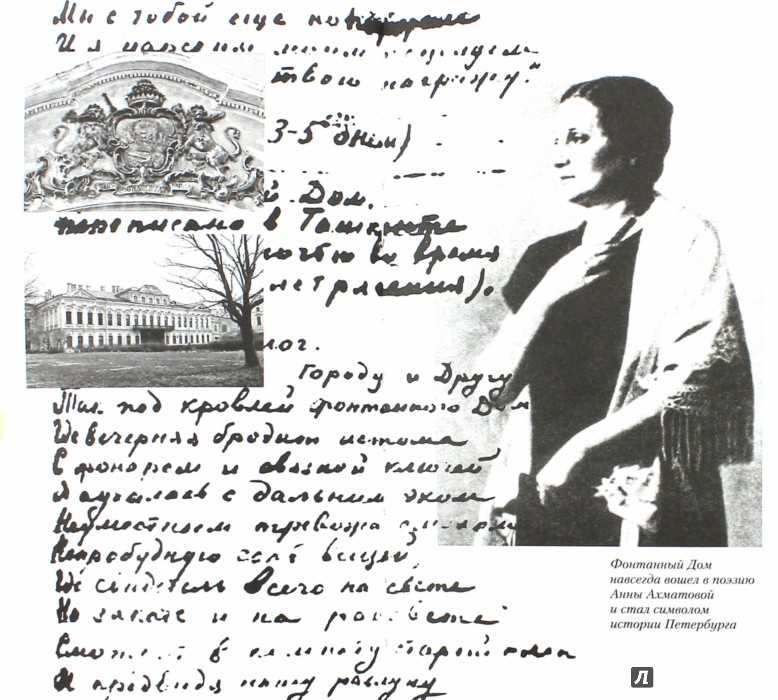 Мы с тобой еще
И я
твою награжу."
3-5 днем)
й Дом.
написано в Ташкенте
ночью во время
).
лог.
Городу и Другу
Так под кровлей Фонтанного Дом
Где вечерняя бродит истома
С фонарем и связкой ключей
Я аукалась с дальним эхом
Неуместным тревожа
Непробудную сонь вещей,
Где свидетель всего на свете
На закате и на рассвете
Смотрит в комнату старый клен
И предвидя нашу разлуку
Фонтанный Дом
навсегда вошел в поэзию
Анны Ахматовой
и стал символом
истории Петербурга
Л